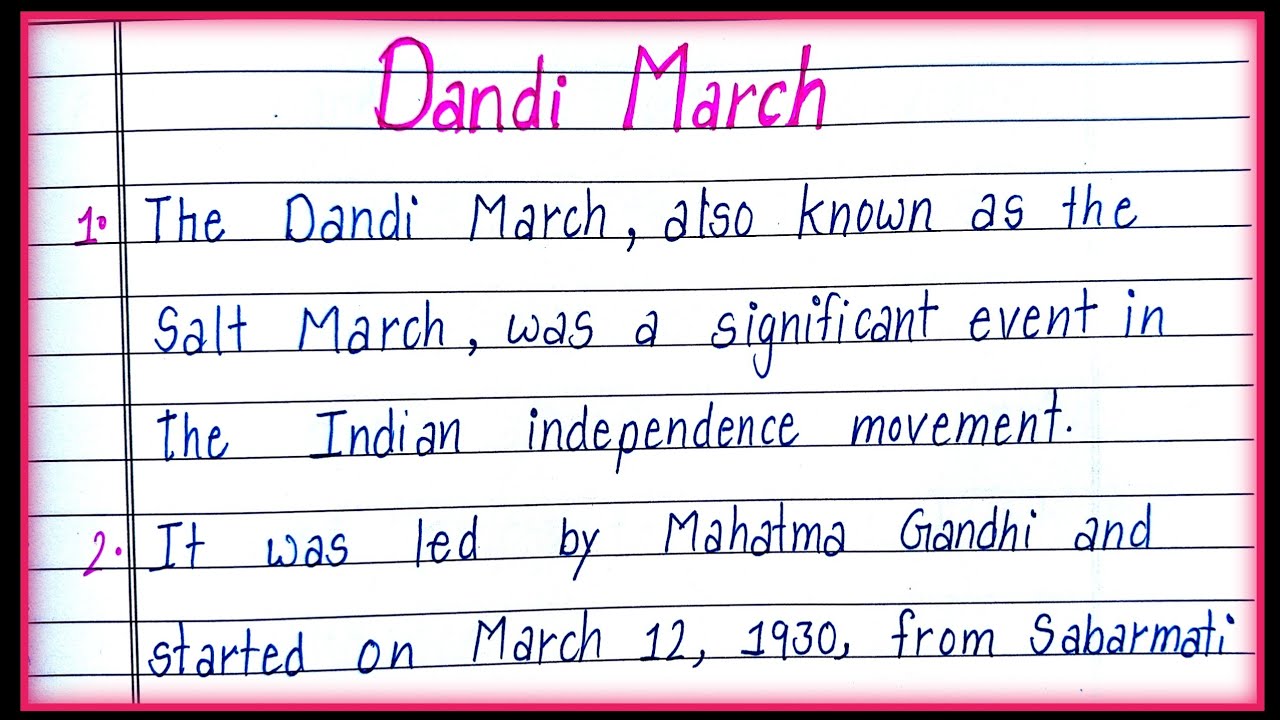 Dandi March
1. The Dandi March, also known as the
Salt March, was a significant event in
the Indian independence movement.
2. It was led by Mahatma Gandhi and
started on March 12, 1930, from Sabarmati